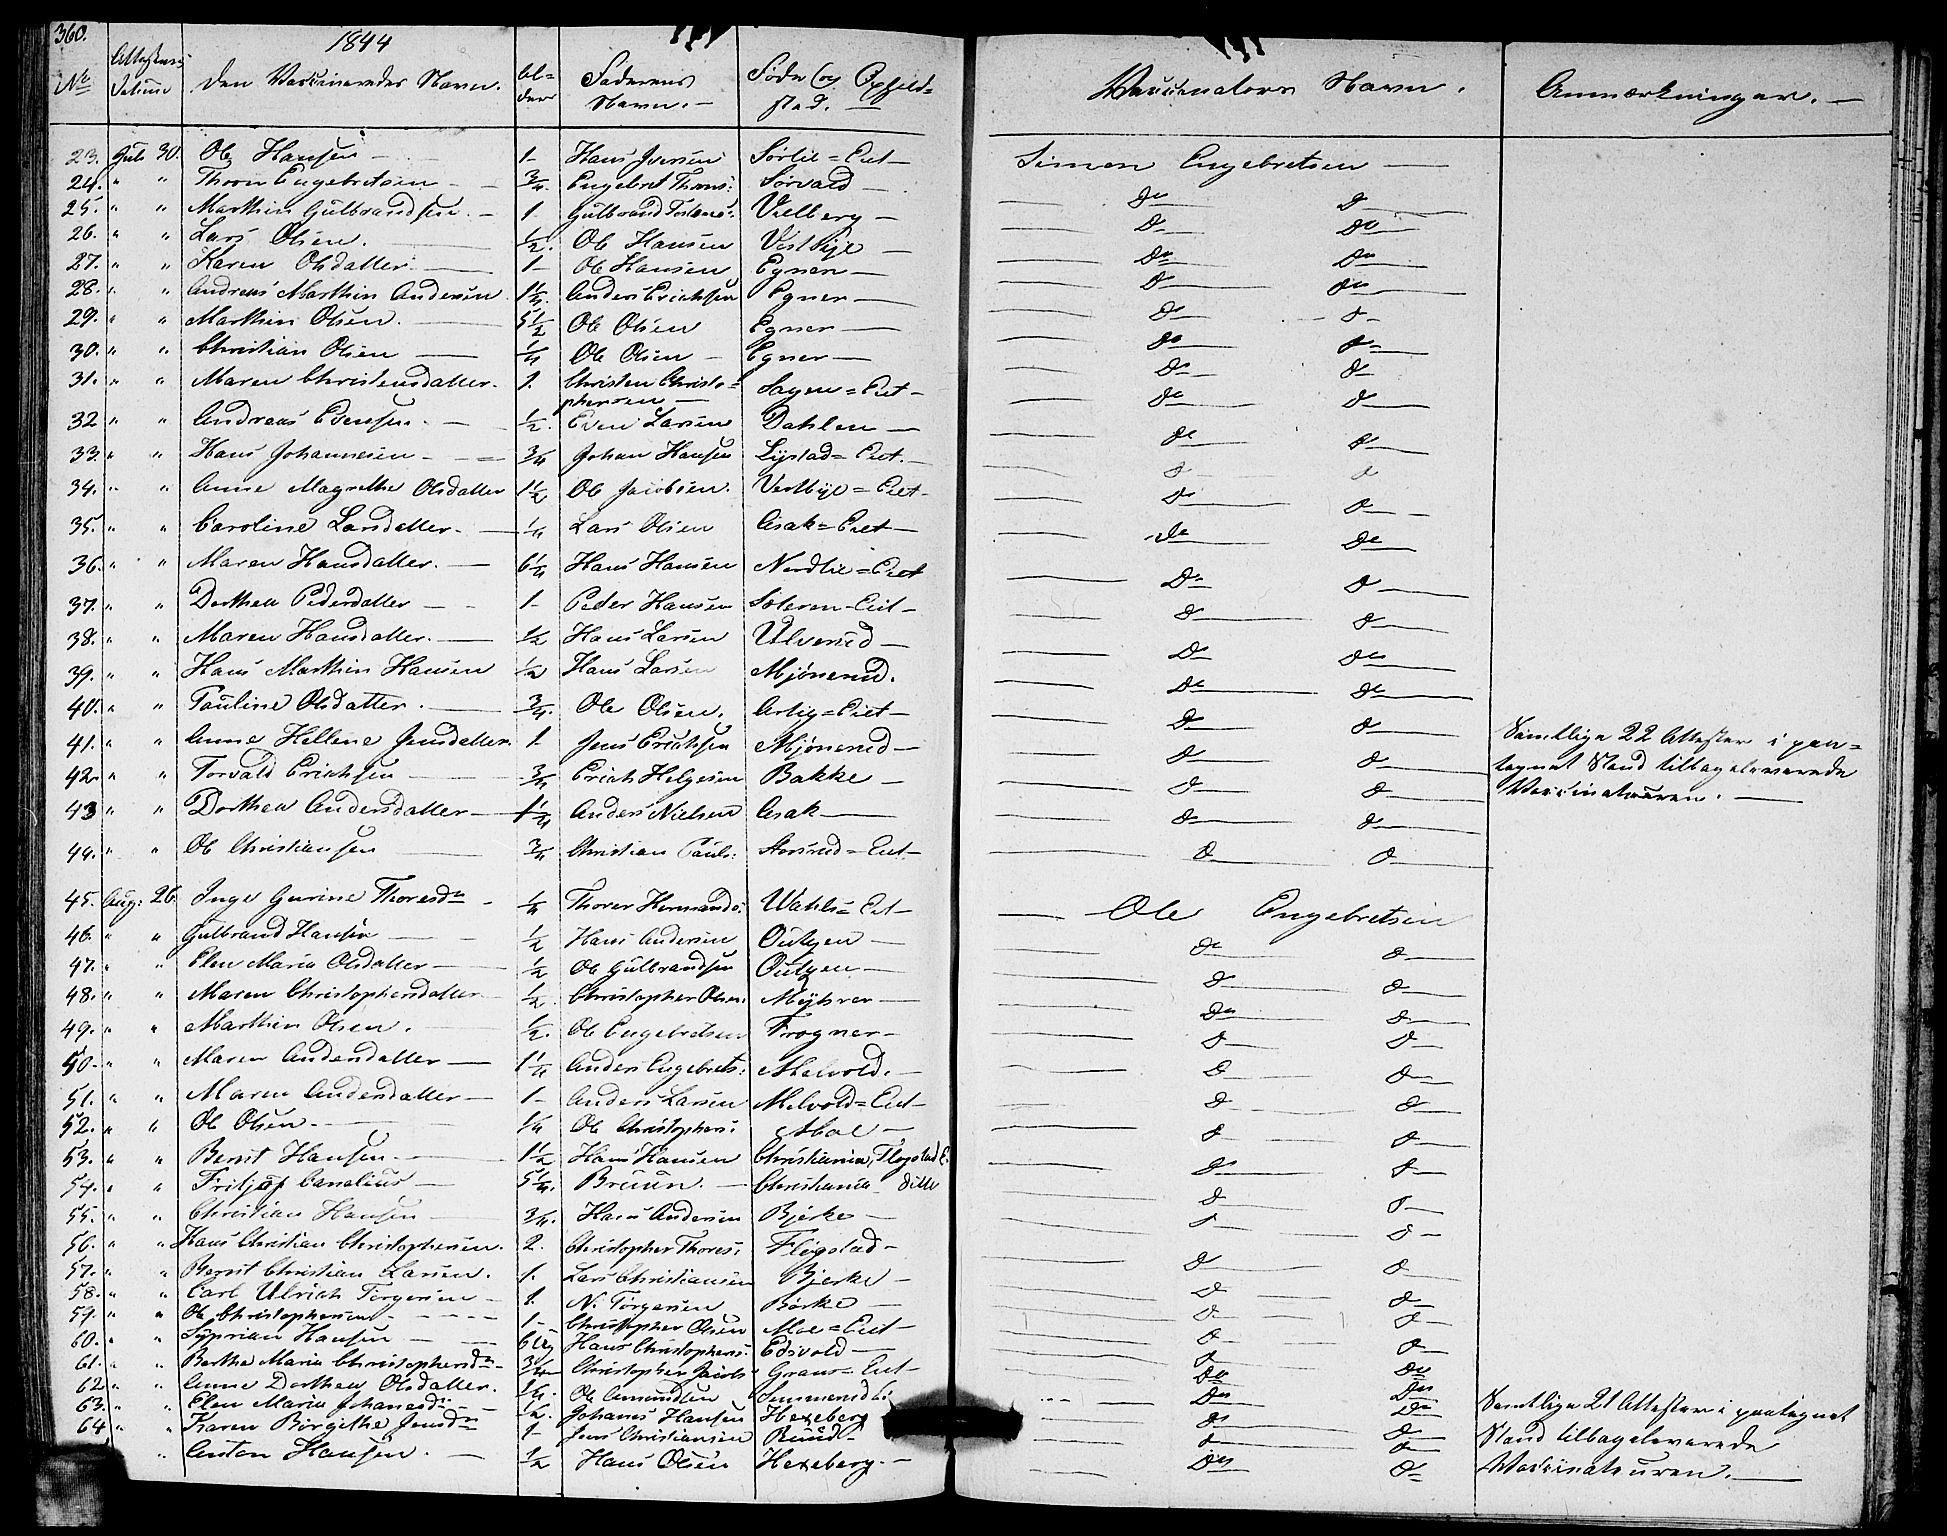 360.
1844
No Attestens Datum Den Vaccineredes Navn. Al- Faderens Føde (og Ophold- Vaccinateurs Navn. Anmærkninger.
der Navn. sted.
23. Juli 30. Ole Hansen 1 Hans Iversen Sørlie=Eiet Simen Engebretsen
24. " " Thorn Engebretsen 3/4. Engebret Thorns: Sørvald do do
25. " " Marthin Gulbrandsen 1 Gulbrand Vielberg do do
26. " " Lars Olsen. 1/2. Ole Hansen Vestbye do do
27. " " Karen Olsdatter 1 Ole Hansen Egner do do
28. " " Andreas Marthin Andersen 1 1/4. Anders Erichsen Egner do do
29. " " Marthin Olsen. 5 1/2 Ole Olsen Egner do do
30. " " Christian Olsen 1/4 Ole Olsen Egner do do
31. " " Maren Christensdatter. 1. Christen Christo= Sagen=Eiet do do
phersen
32 " " Andreas Evensen. 1/2. Even Larsen Dahlen do do
33. " " Hans Johannesen 3/4 Johan Hansen Lystad=Eiet. do do
34. " " Anne Magrethe Olsdatter 1 1/2 Ole Jacobsen. Vestbye=Eiet do do
35. " " Caroline Larsdatter. 1/4 Lars Olsen Asak=Eiet do do
36. " " Maren Hansdatter. 6 1/4 Hans Hansen Nordlie=Eiet do do
37. " " Dorthea Pedersdatter 1 Peder Hansen Soleren-Eiet do do
38. " " Maren Hansdatter. 1/2 Hans Larsen Ulverud do do
39. " " Hans Marthin Hansen 1/2 Hans Larsen Mjønerud. do do
40. " " Pauline Olsdatter. 3/4. Ole Olsen. Arlig=Eiet do do
41. " " Anne Hellene Jensdatter. 1 Jens Erichsen Mjønerud do do Samtlige 22 Attester i paa=
42. " " Torvald Erichsen 3/4 Erich Helgesen Bakke do do tegnet Stand tilbageleverede
43 " " Dorthea Andersdatter 1 1/4 Anders Nielsen Asak do do Vaccinateuren.
44. " " Ole Christiansen 3/4 Christian Pauls: =Eiet do do
45. Aug. 26. Inge Gurine Thoresdr 1/4 Thorer Hermands: Wahls=Eiet Ole Engebretsen
46. " " Gulbrand Hansen 1/2 Hans Andersen Outgen do do
47. " " Elen Maria Olsdatter 1/2 Ole Gulbrandsen Outgen do do
48. " " Maren Christophersdatter 1/2. Christopher Olsen: Myhrer do do
49. " " Marthin Olsen. 1/2. Ole Engebretsen Frogner do do
50. " " Maren Andersdatter 1 1/4 Anders Engebrets: Melvold. do do
51. " " Maren Andersdatter 1 Anders Larsen Melvold=Eiet do do
52. " " Ole Olsen. 1/4 Ole Christophers: Moe do do
53. " " Bernt Hansen. 1 1/2 Hans Hansen Christiania, Flogstad E. do do
54. " " Fritjof Canelius 5 1/4. Bruun. Christiania ditto do do
55. " " Christian Hansen 3/4. Hans Andersen Bjerke do do
56. " " Hans Christian Christophersen. 2. Christopher Thores: Flogstad do do
57. " " Bernt Christian Larsen. 1. Lars Christiansen Bjerke do do
58. " " Carl Ulrich Torgersen 1. N. Torgersen Børke do do
59. " " Ole Christophersen 1 Christopher Olsen Moe=Eiet do do
60. " " Syprian Hansen Hans Christophers: Edsvold do do
61. " " Berthe Maria Christophersdr 3/4 Christopher Jacobs: Grans=Eiet do do
62 " " Anne Dorthea Olsdatter. 1/4. Ole Amundsen do do Samtlige 21 Attester i paategnet
63. " " Elen Maria Johanesdr 1/2. Johanes Hansen Hexeberg do do
64 " " Karen Birgithe Jensdr 1 Jens Christiansen Ruud do do Stand tilbageleverede
" Anton Hansen. 1/2 Hans Olsen Hexeberg. do do Vaccinateuren.